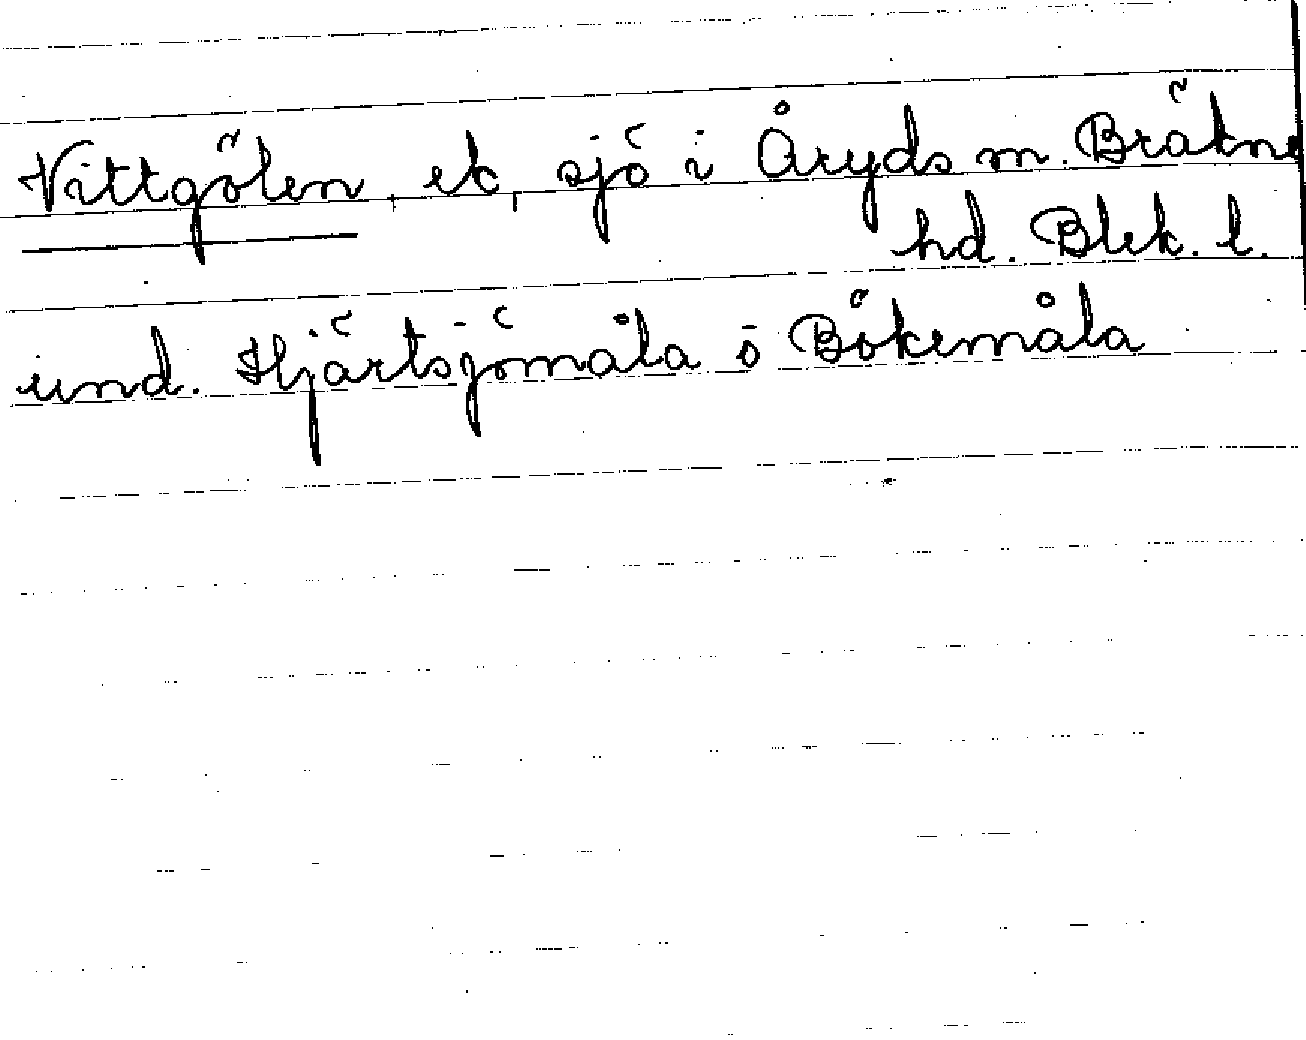 Vittgölen, ek, sjö i Åryds m. Bräkne
hd. Blek. l.
und. Hjärtsjömåla o Bökemåla